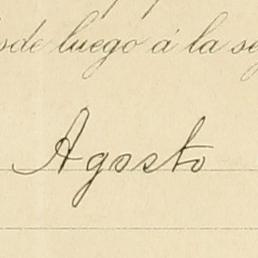 sde luego á la se
Agosto